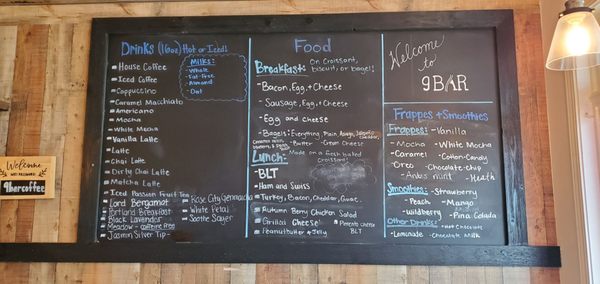 Drinks (16oz) Hot or Iced!
Milks:
- Whole
- Fat-Free
- Almond
- Oat
House Coffee
Iced Coffee
Cappuccino
Caramel Macchiato
Americano
Mocha
White Mocha
Vanilla Latte
Latte
Chai Latte
Dirty Chai Latte
Matcha Latte
Iced Passion Fruit Tea
Lord Bergamot
Portland Breakfast
Black Lavender
Meadow - caffeine free
Jasmin Silver Tip
- Rose City Genmaicha
- White Petal
- Soothe Sayer
Food
Breakfast: On croissant,
biscuit, or bagel!
- Bacon, Egg, + Cheese
- Sausage, Egg, + Cheese
- Egg and Cheese
- Bagels: Everything, Plain
- Butter - Cream Cheese
Lunch: Made on a fresh baked
croissant!
- BLT
- Ham and Swiss
Turkey, Bacon, Cheddar, Guac.
Autumn Berry Chicken Salad
Grilled Cheese
Pimento cheese
BLT
Peanutbutter + Jelly
Welcome
to
9BAR
Frappes + Smoothies
Frappes: - Vanilla
- Mocha - White Mocha
- Caramel - Cotton-Candy
- Oreo - Chocolate-chip
- Andes mint - Heath
Smoothies: - Strawberry
- Peach - Mango
- Wildberry - Pina Colada
Other Drinks: - Hot Chocolate
- Lemonade - Chocolate Milk
Welcome
9barcoffee